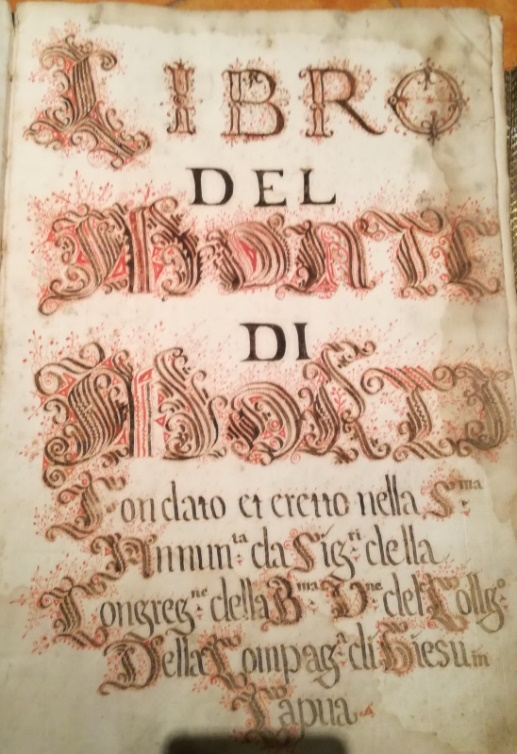 LIBRO
DEL
MONTE
DI
MORTI
Fondato et eretto nella S.ma
Annun.ta da Sig.ri della
Congreg.ne della B.ma V.ne del Collg.o
Della Compag.a di Giesu in
Capua